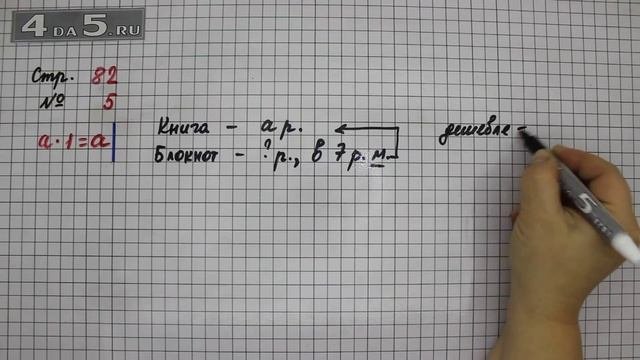 4 DA 5.RU
Стр. 82
№ 5
a · 1 = a
Книга - a р.
Блокнот - ? р., в 7 р. м.
дешевле -